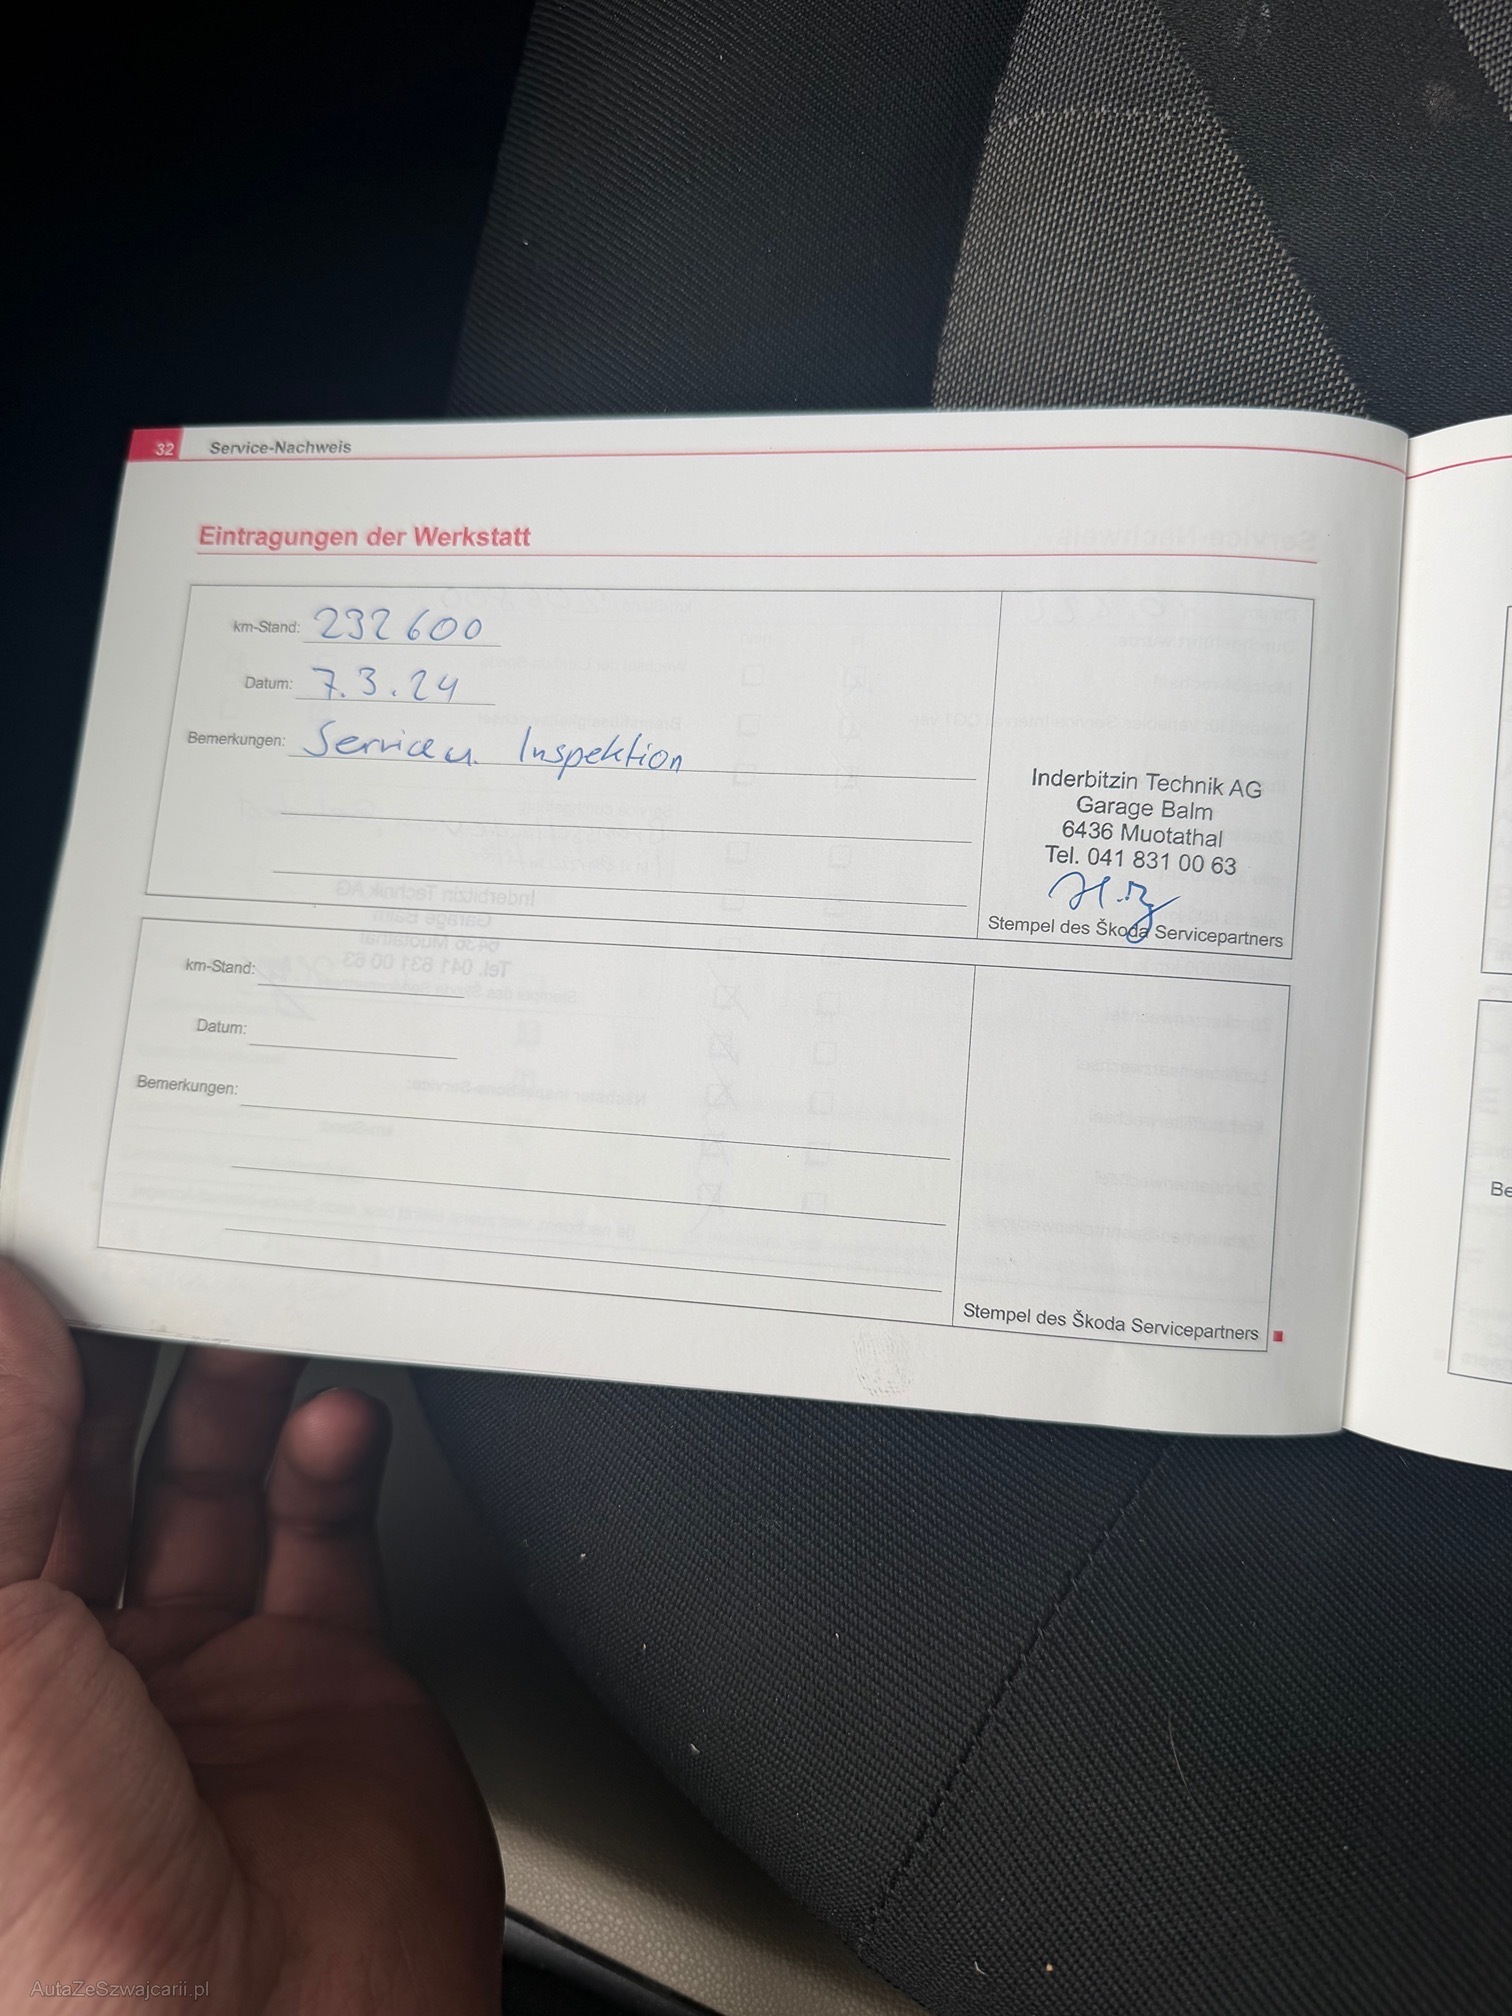 32 Service-Nachweis
Eintragungen der Werkstatt
km-Stand: 232600
Datum: 7.3.24
Bemerkungen: Service u. Inspektion
Inderbitzin Technik AG
Garage Balm
6436 Muotathal
Tel. 041 831 00 63
Stempel des Škoda Servicepartners
km-Stand:
Datum:
Bemerkungen:
Stempel des Škoda Servicepartners
Be
AutaZeSzwajcarii.pl